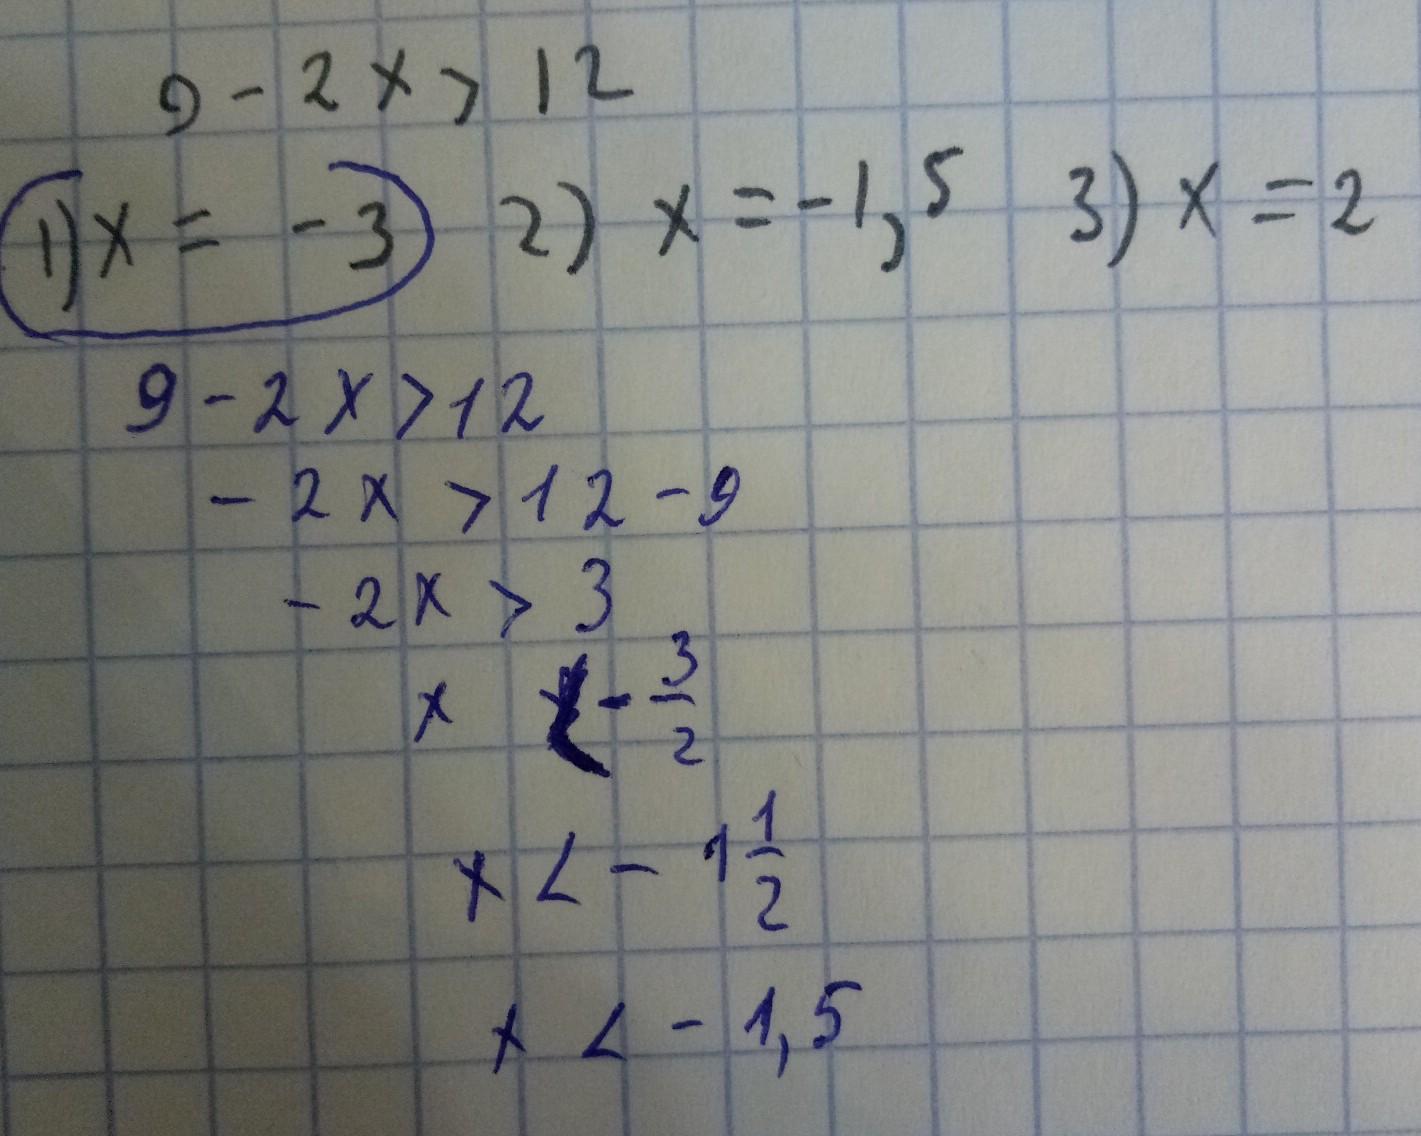 9 - 2x > 12
1) x = -3 2) x = -1,5 3) x = 2
9 - 2x > 12
- 2x > 12 - 9
- 2x > 3
x < - 3/2
x < - 1 1/2
x < - 1,5